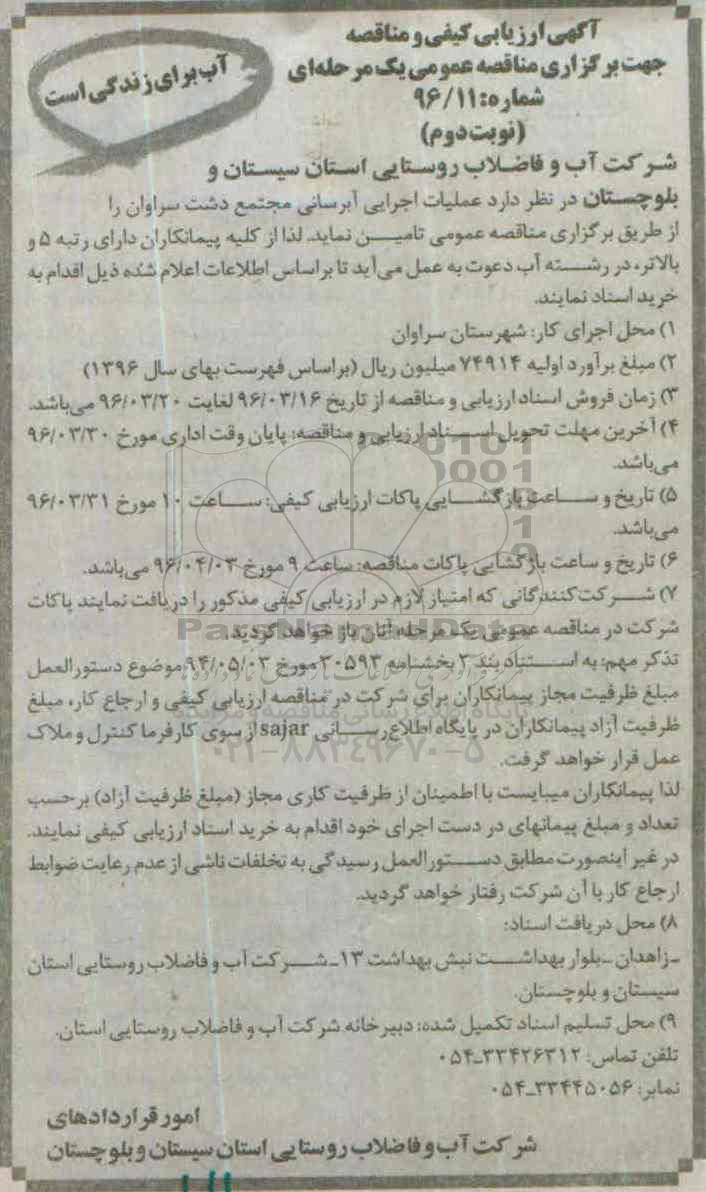 آگهی ارزیابی کیفی و مناقصه
جهت برگزاری مناقصه عمومی یک مرحله‌ای
شماره: ۹۶/۱۱
(نوبت دوم)
آب برای زندگی است
شرکت آب و فاضلاب روستایی استان سیستان و
بلوچستان در نظر دارد عملیات اجرایی آبرسانی مجتمع دشت سراوان را
از طریق برگزاری مناقصه عمومی تامین نماید. لذا از کلیه پیمانکاران دارای رتبه ۵ و
بالاتر، در رشته آب دعوت به عمل می‌آید تا براساس اطلاعات اعلام شده ذیل اقدام به
خرید اسناد نمایند.
۱) محل اجرای کار: شهرستان سراوان
۲) مبلغ برآورد اولیه ۷۴۹۱۴ میلیون ریال (براساس فهرست بهای سال ۱۳۹۶)
۳) زمان فروش اسناد ارزیابی و مناقصه از تاریخ ۹۶/۰۳/۱۶ لغایت ۹۶/۰۳/۲۰ می‌باشد.
۴) آخرین مهلت تحویل اسناد ارزیابی و مناقصه: پایان وقت اداری مورخ ۹۶/۰۳/۳۰
می‌باشد.
۵) تاریخ و ساعت بازگشایی پاکات ارزیابی کیفی: ساعت ۱۰ مورخ ۹۶/۰۳/۳۱
می‌باشد.
۶) تاریخ و ساعت بازگشایی پاکات مناقصه: ساعت ۹ مورخ ۹۶/۰۴/۰۳ می‌باشد.
۷) شرکت‌کنندگانی که امتیاز لازم در ارزیابی کیفی مذکور را دریافت نمایند پاکات
شرکت در مناقصه عمومی یک مرحله آنان باز خواهد گردید.
ParsNamadData
تذکر مهم: به استناد بند ۲ بخشنامه ۳۰۵۹۳ مورخ ۹۴/۰۵/۰۳ موضوع دستورالعمل
مبلغ ظرفیت مجاز پیمانکاران برای شرکت در مناقصه ارزیابی کیفی و ارجاع کار، مبلغ
ظرفیت آزاد پیمانکاران در پایگاه اطلاع‌رسانی sajar از سوی کارفرما کنترل و ملاک
عمل قرار خواهد گرفت.
۰۲۱-۸۸۳۴۹۶۷۰-۵
لذا پیمانکاران میبایست با اطمینان از ظرفیت کاری مجاز (مبلغ ظرفیت آزاد) برحسب
تعداد و مبلغ پیمانهای در دست اجرای خود اقدام به خرید اسناد ارزیابی کیفی نمایند.
در غیر اینصورت مطابق دستورالعمل رسیدگی به تخلفات ناشی از عدم رعایت ضوابط
ارجاع کار با آن شرکت رفتار خواهد گردید.
۸) محل دریافت اسناد:
-زاهدان -بلوار بهداشت نبش بهداشت ۱۳- شرکت آب و فاضلاب روستایی استان
سیستان و بلوچستان.
۹) محل تسلیم اسناد تکمیل شده: دبیرخانه شرکت آب و فاضلاب روستایی استان.
تلفن تماس: ۳۳۴۲۶۳۱۲-۰۵۴
نمابر: ۳۳۴۴۵۰۵۶-۰۵۴
امور قراردادهای
شرکت آب و فاضلاب روستایی استان سیستان و بلوچستان